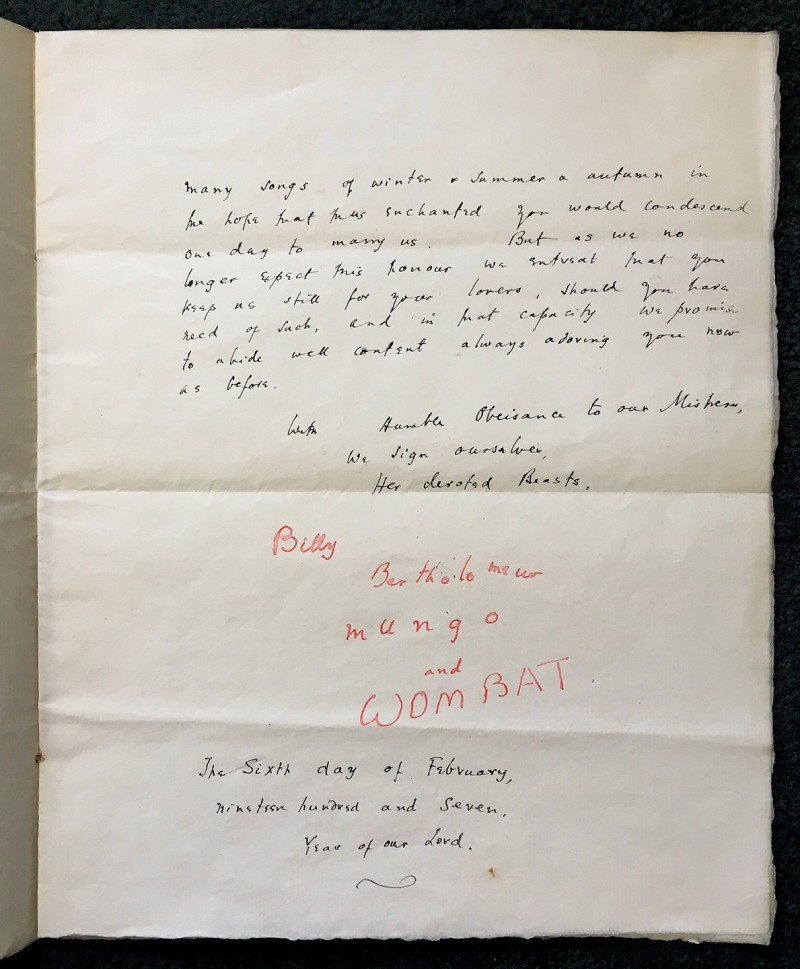 many songs of winter & summer & autumn in
the hope that thus enchanted you would condescend
one day to marry us. But as we no
longer expect this honour we entreat that you
keep us still for your lovers, should you have
need of such, and in that capacity we promise
to abide well content always adoring you now
as before.
With Humble Obeisance to our Mistress,
We sign ourselves,
Her devoted Beasts,
Billy
Bartholomew
mungo
and
WOMBAT.
The Sixth day of February,
nineteen hundred and Seven,
Year of our Lord.